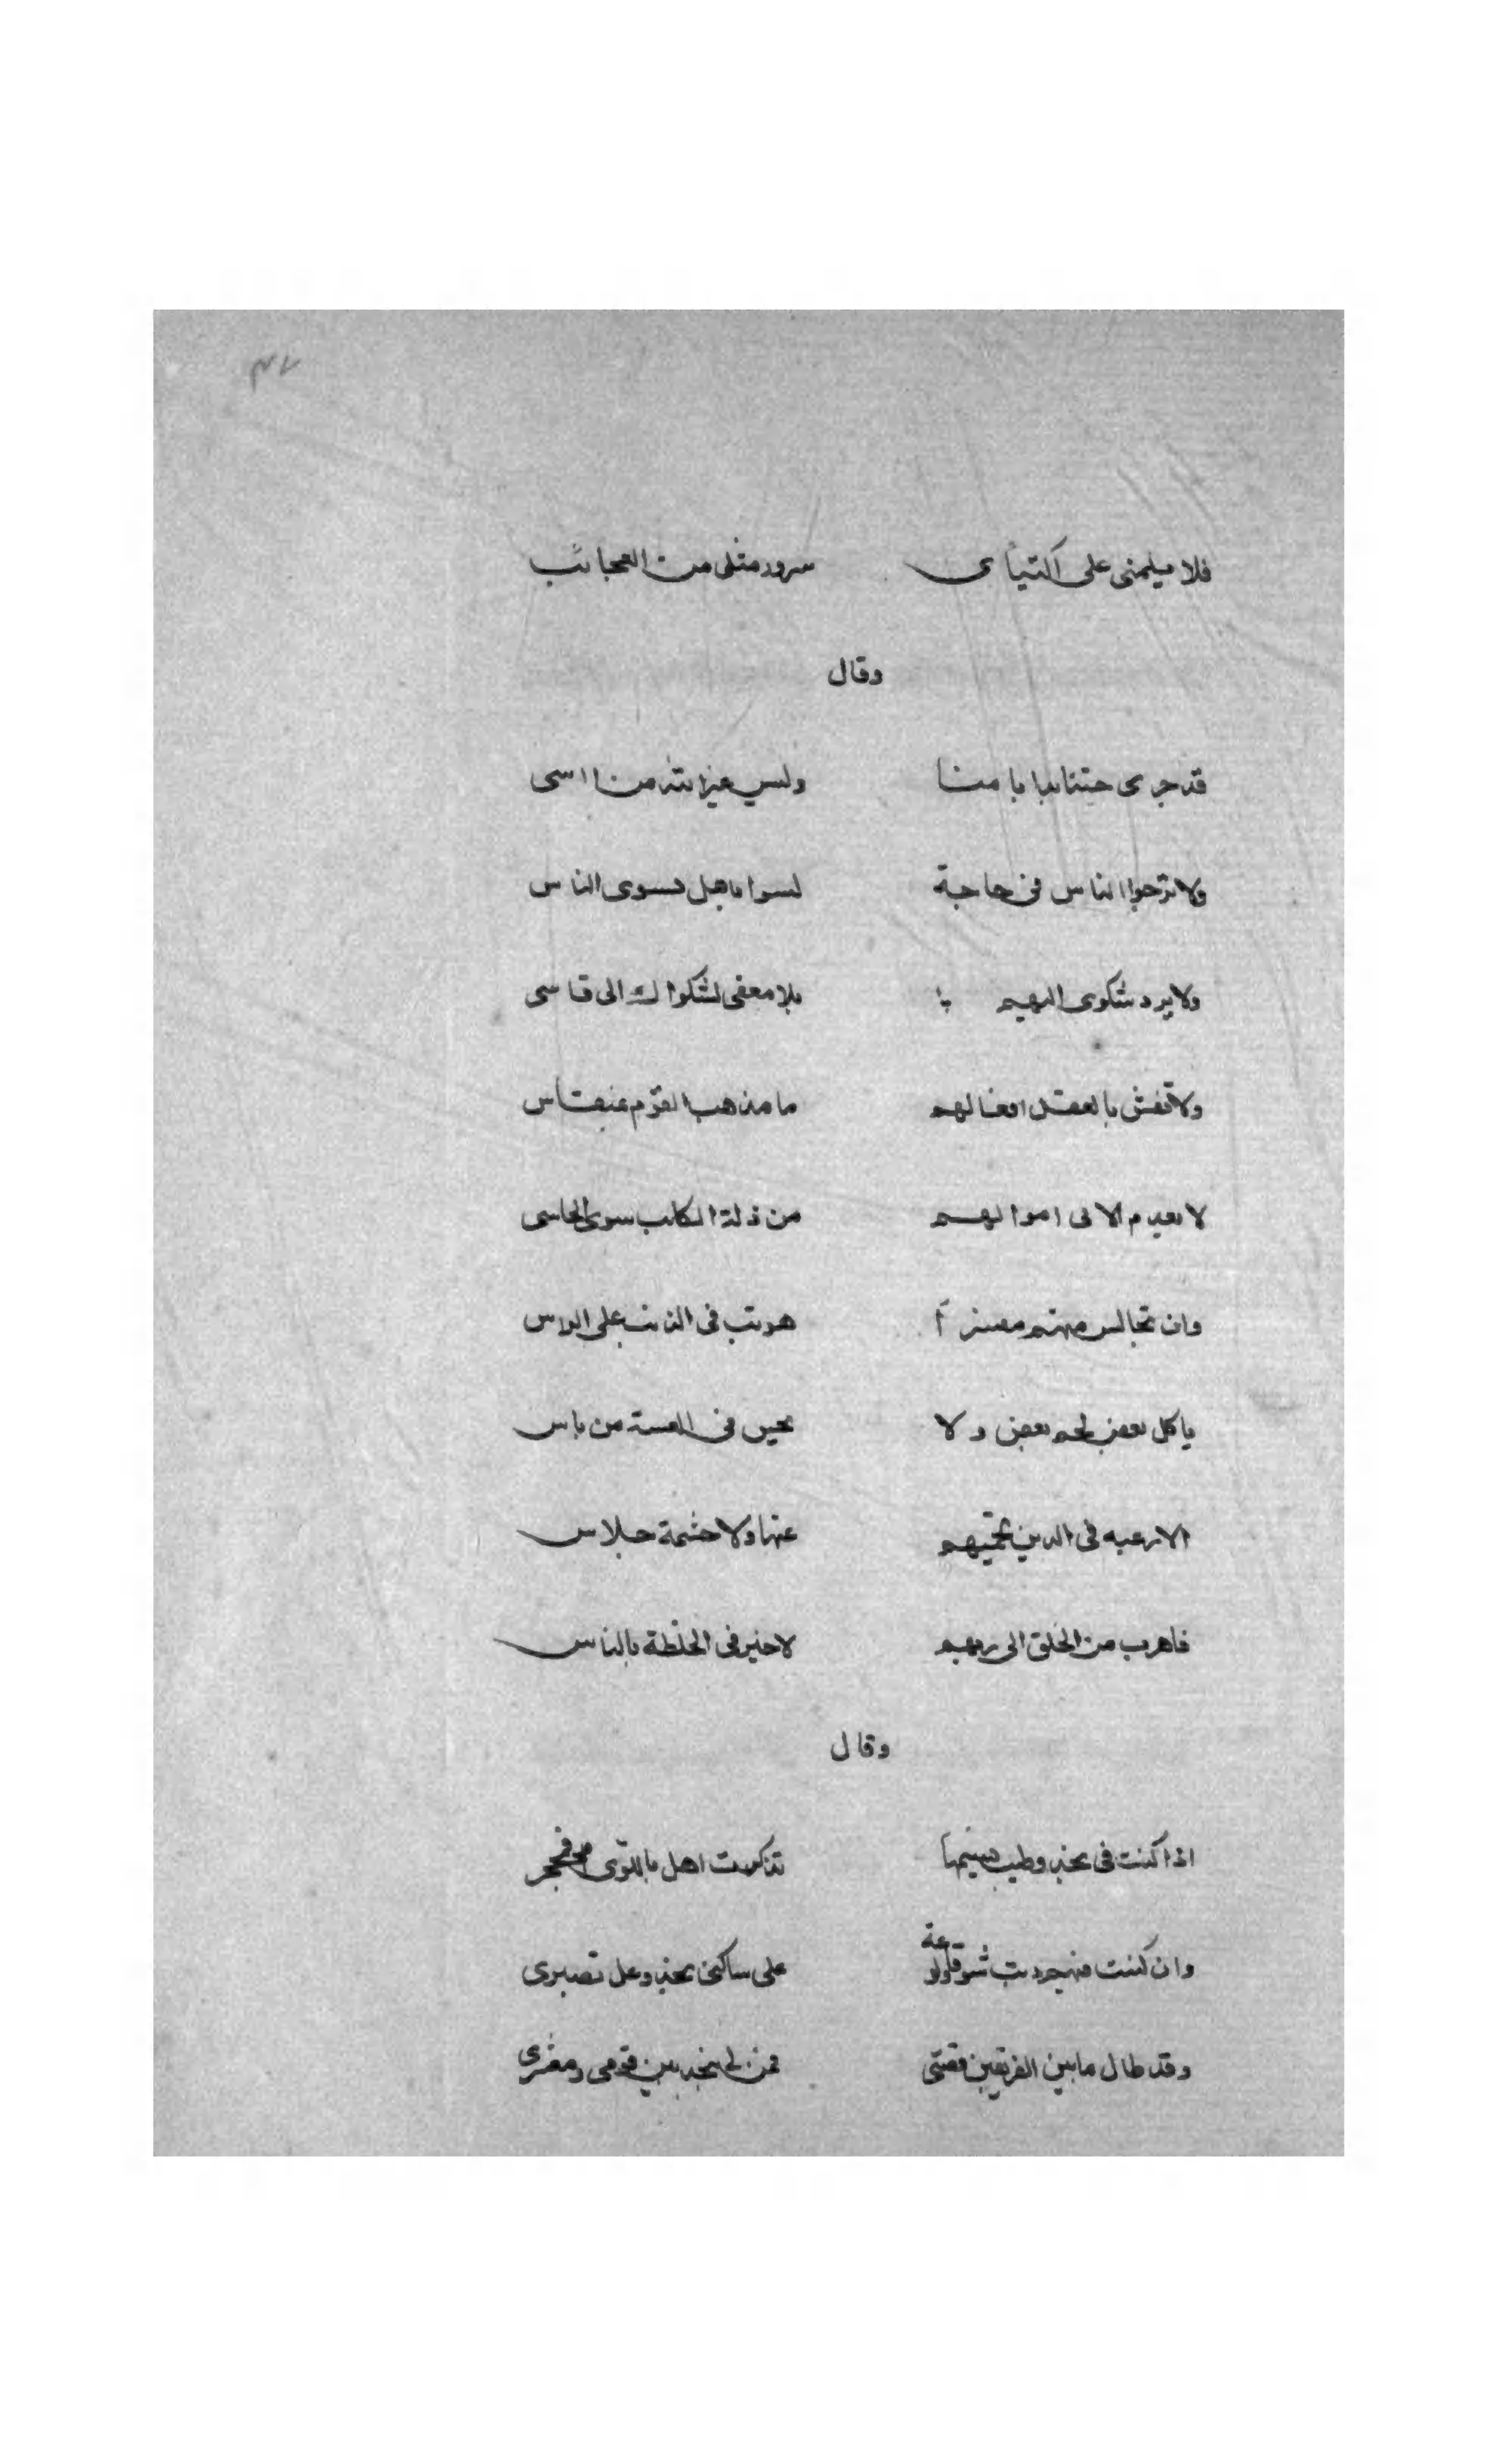 ٧٣
فلا يلمنى على اكتيابى سرور مثلى من العجائب
وقال
قد جرى وليس غير الله من اسى
ولا ترجوا الناس فى حاجة ليسوا باهل سوى الناس
ولا يرد شكوى اليهم فلا معنى لشكواك الى قاسى
ولا تقش بالعقل افعالهم ما مذهب القوم بمنقاس
لا يعدم الا فى اموالهم من ذلة الكلب سوى الخاسى
وان تجالس منهم معشرا هويت فى الذنب على الراس
ياكل بعض لحم بعض ولا يحس فى الغيبة من باس
لا رغبة فى الدين تحميهم عنها ولا حشمة جلاس
فاهرب من الخلق الى ربهم لا خير فى الخلطة بالناس
وقال
اذا كنت فى نجد وطيب نسيمها تذكرت اهل باللوى فمحجر
وان كنت فيهم ذبت شوقا ولوعة على ساكنى نجد وعل تصبرى
وقد طال ما بين الفريقين قصتى فمن لى بنجد بين قومى ومعشرى